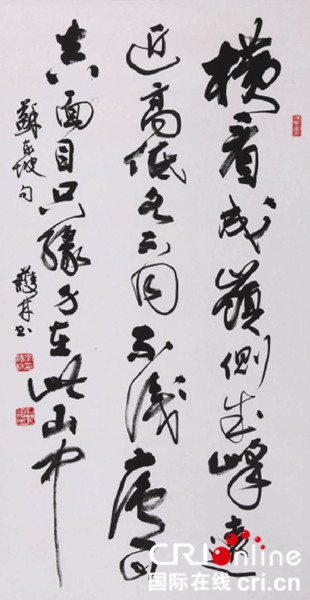 橫看成嶺側成峰遠
近高低各不同不識廬山
真面目只緣身在此山中
蘇東坡句
书
CRI Online
国际在线 cri.cn